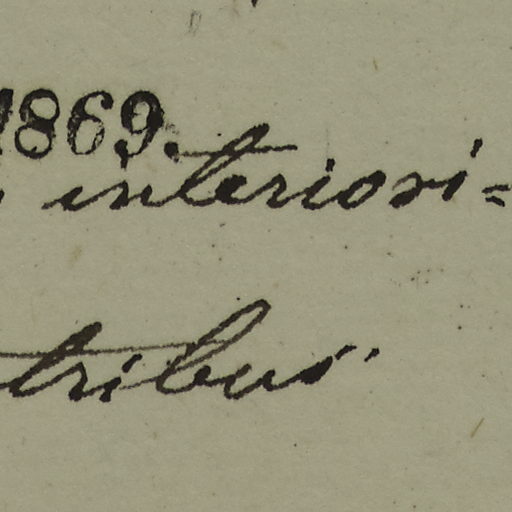 1869.
interiori=
tribus.